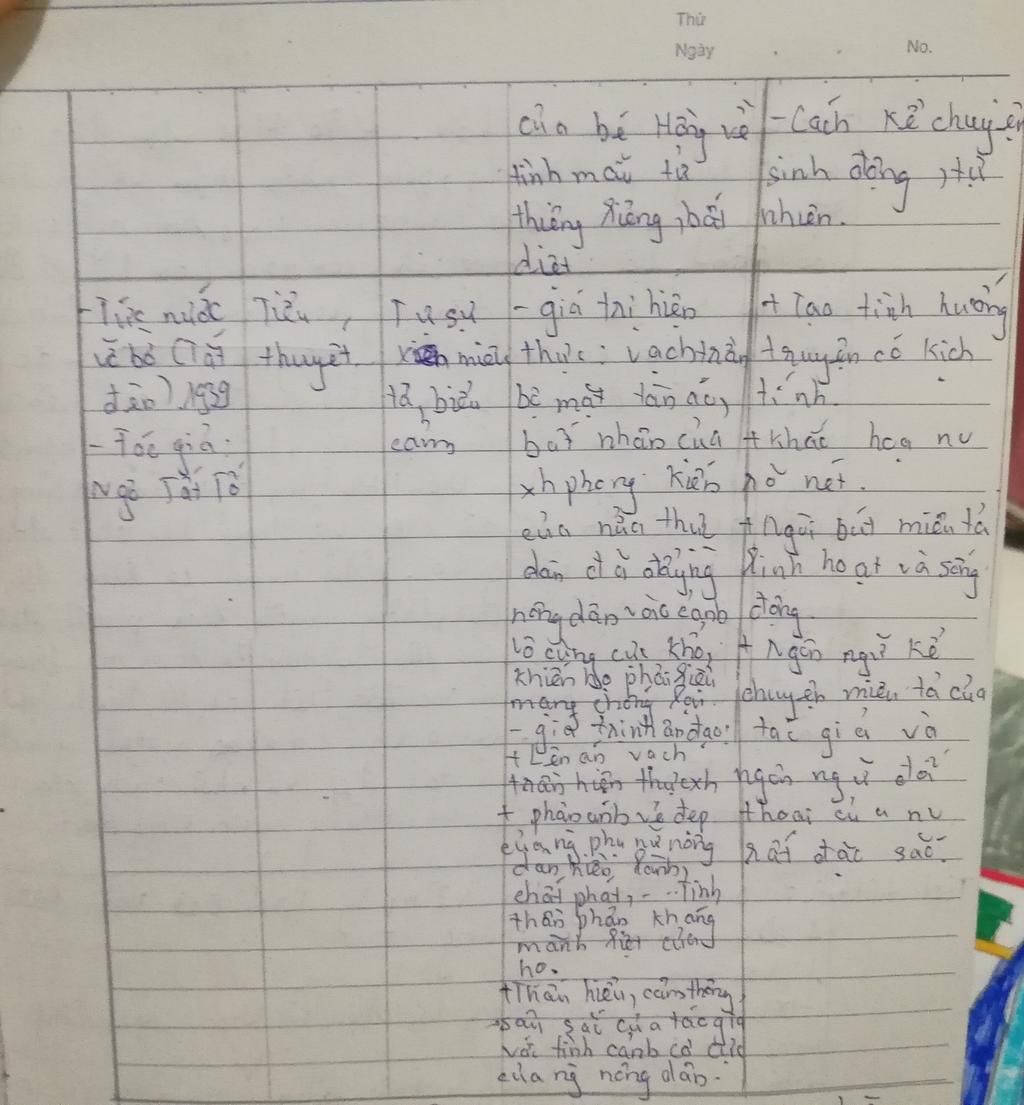 Thứ
Ngày . . No.
của bé Hồng về
tình mẫu tử
thiêng liêng, bất
diệt
- Cách kể chuyện
sinh động, tự
nhiên.
- Tức nước
vỡ bờ (Tắt
đèn), 1939
- Tác giả:
Ngô Tất Tố
Tiểu
thuyết
Tự sự
miêu
tả, biểu
cảm
- giá trị hiện
thực: vạch trần
bộ mặt tàn ác,
bất nhân của
xh phong kiến
của nửa thực
dân đã đẩy ng
nông dân vào cảnh
vô cùng cực khổ,
khiến họ phải liều
mạng chống lại.
- giá trị nhân đạo:
+ Lên án vạch
trần hiện thực xh
+ phản ánh vẻ đẹp
của ng phụ nữ nông
dân hiền lành,
chất phát, -.. Tinh
thần phản kháng
mãnh liệt của
họ.
+ Thấu hiểu, cảm thông,
sâu sắc của tác giả
với tình cảnh cơ cực
của ng nông dân.
+ Tạo tình huống
truyện có kịch
tính.
+ khắc hoạ nv
rõ nét.
+ Ngòi bút miêu tả
linh hoạt và sống
động.
+ Ngôn ngữ kể
chuyện miêu tả của
tác giả và
ngôn ngữ đối
thoại của nv
rất đặc sắc.